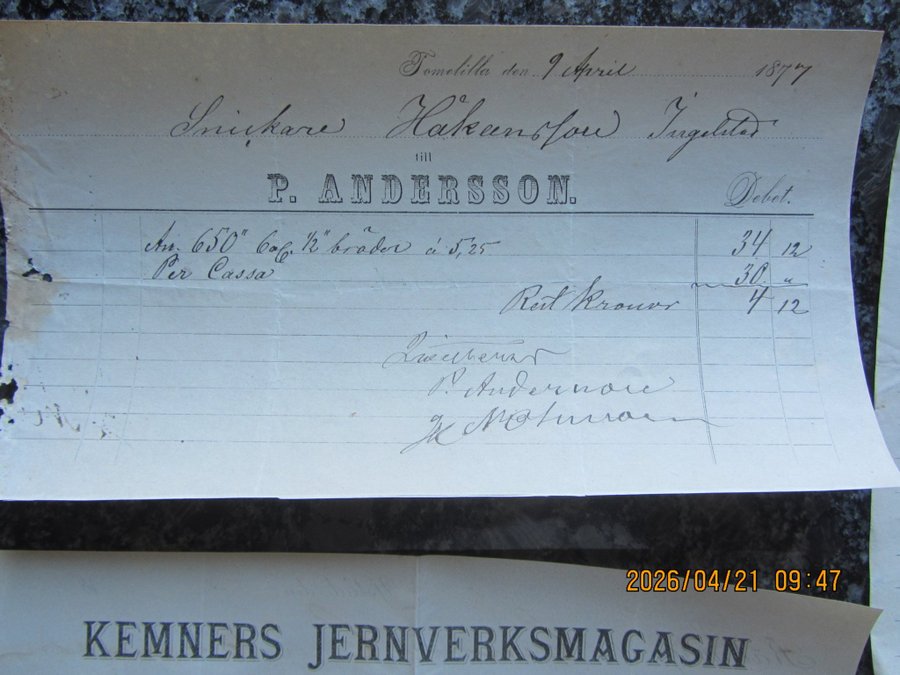 Tomelilla den 9 April 1877
Snickare Håkansson Ingelstad
till
P. ANDERSSON.
Debet.
An. 650" 6 1/2" bräder á 5,25 34 12
Per Cassa 30 "
Rest Kronor 4 12
Qvitteras
P. Andersson
2026/04/21 09:47
KEMNERS JERNVERKSMAGASIN